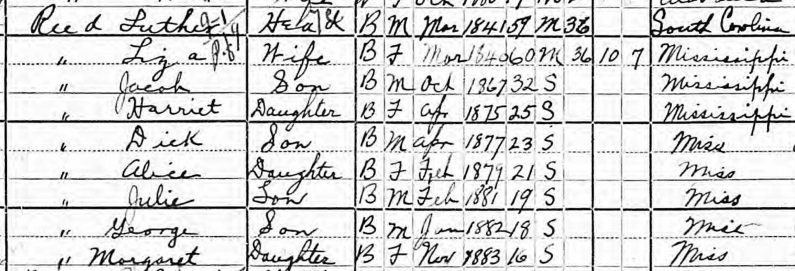 Reed Luther J-1 Head B M Mar 1841 59 M 36 South Carolina
" Liza p.84 Wife B F Mar 1840 60 M 36 10 7 Mississippi
" Jacob Son B M Oct 1867 32 S Mississippi
" Harriet Daughter B F Apr 1875 25 S Mississippi
" Dick Son B M Apr 1877 23 S Miss
" Alice Daughter B F Feb 1879 21 S Miss
" Julie Son B M Feb 1881 19 S Miss
" George Son B M Jan 1882 18 S Miss
" Margaret Daughter B F Nov 1883 16 S Miss